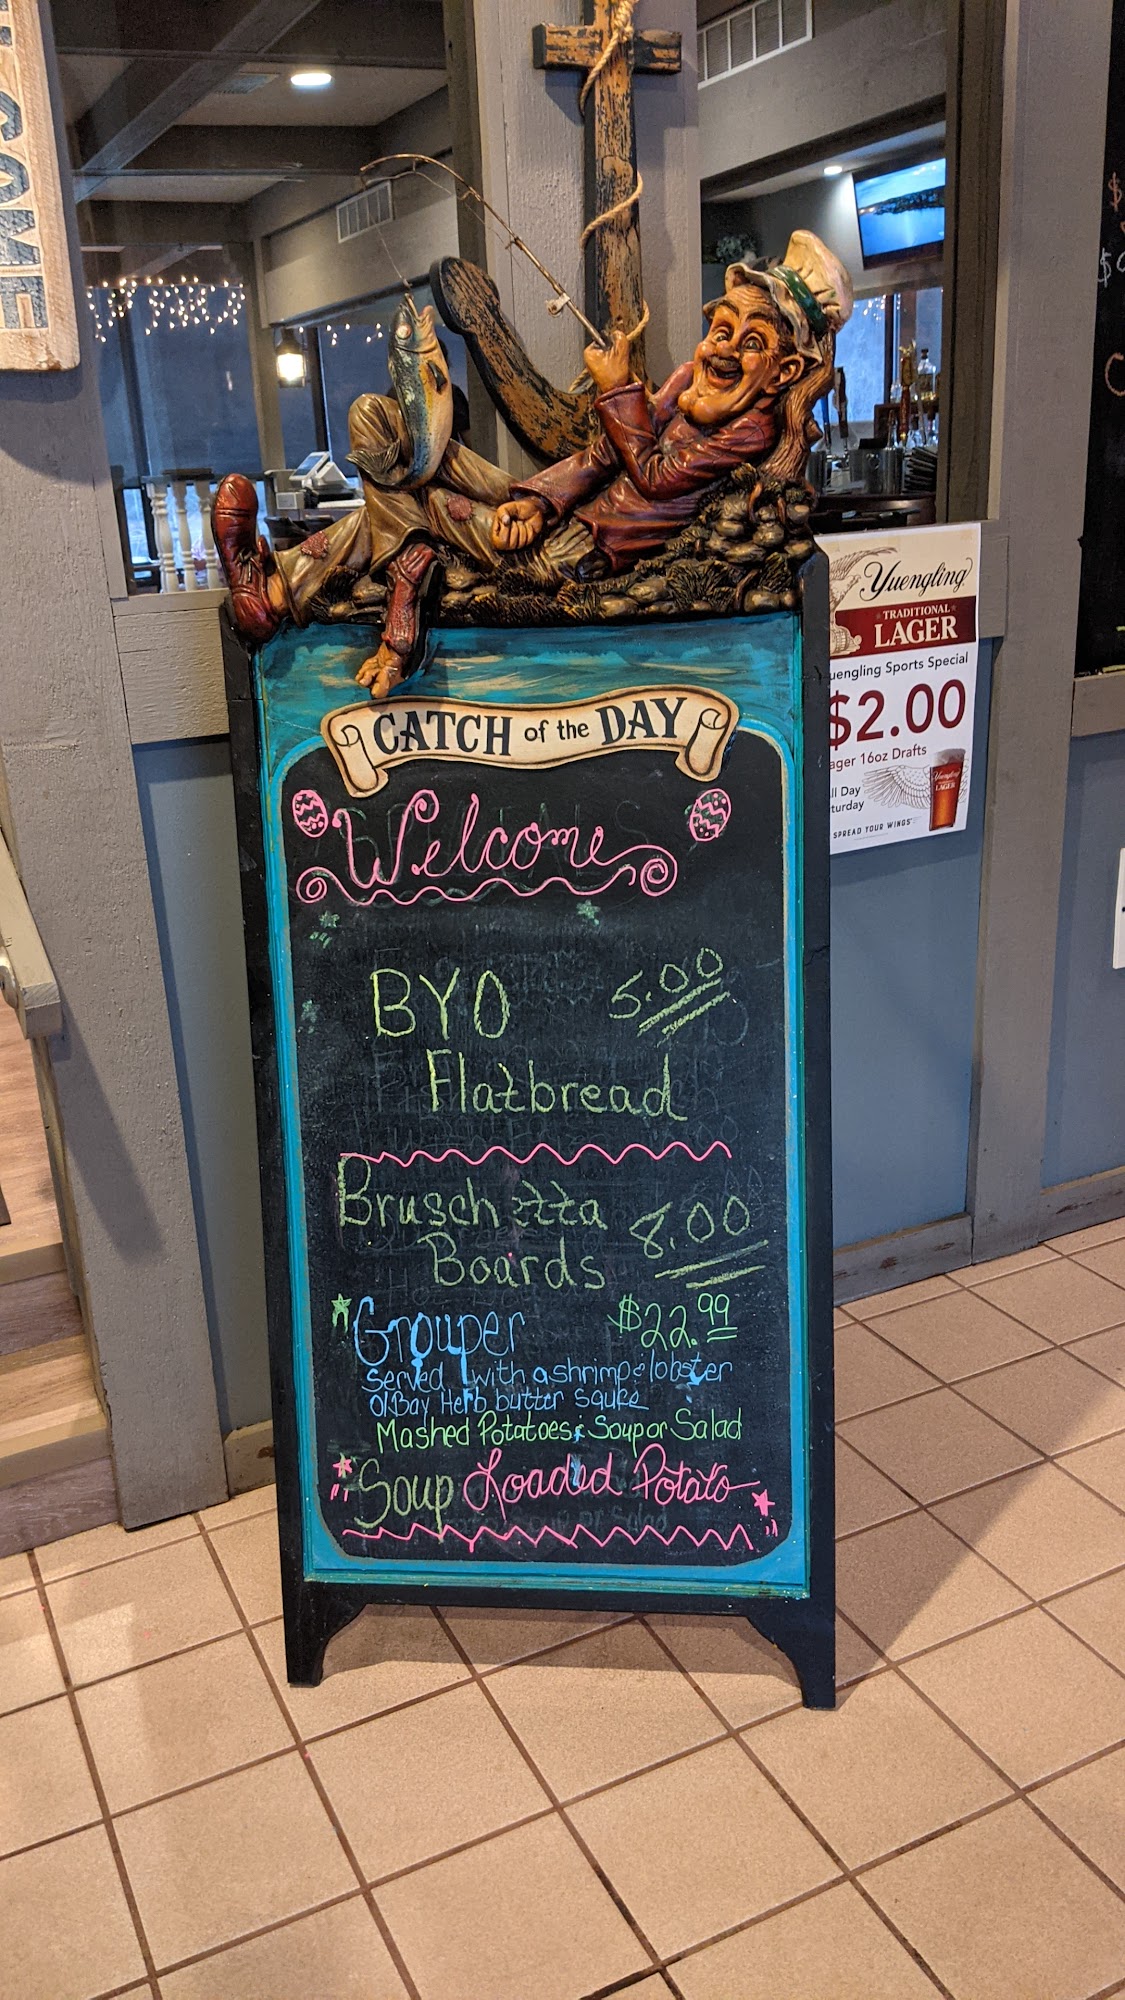 COME
CATCH of the DAY
Welcome
BYO 5.00
Flatbread
Bruschetta
Boards 8.00
Grouper $22.99
served with a shrimp & lobster
Ol Bay Herb butter sauce
Mashed Potatoes & Soup or Salad
Soup Loaded Potato
Yuengling
TRADITIONAL
LAGER
uengling Sports Special
$2.00
ager 16oz Drafts
ll Day
turday
SPREAD YOUR WINGS
Yuengling
LAGER